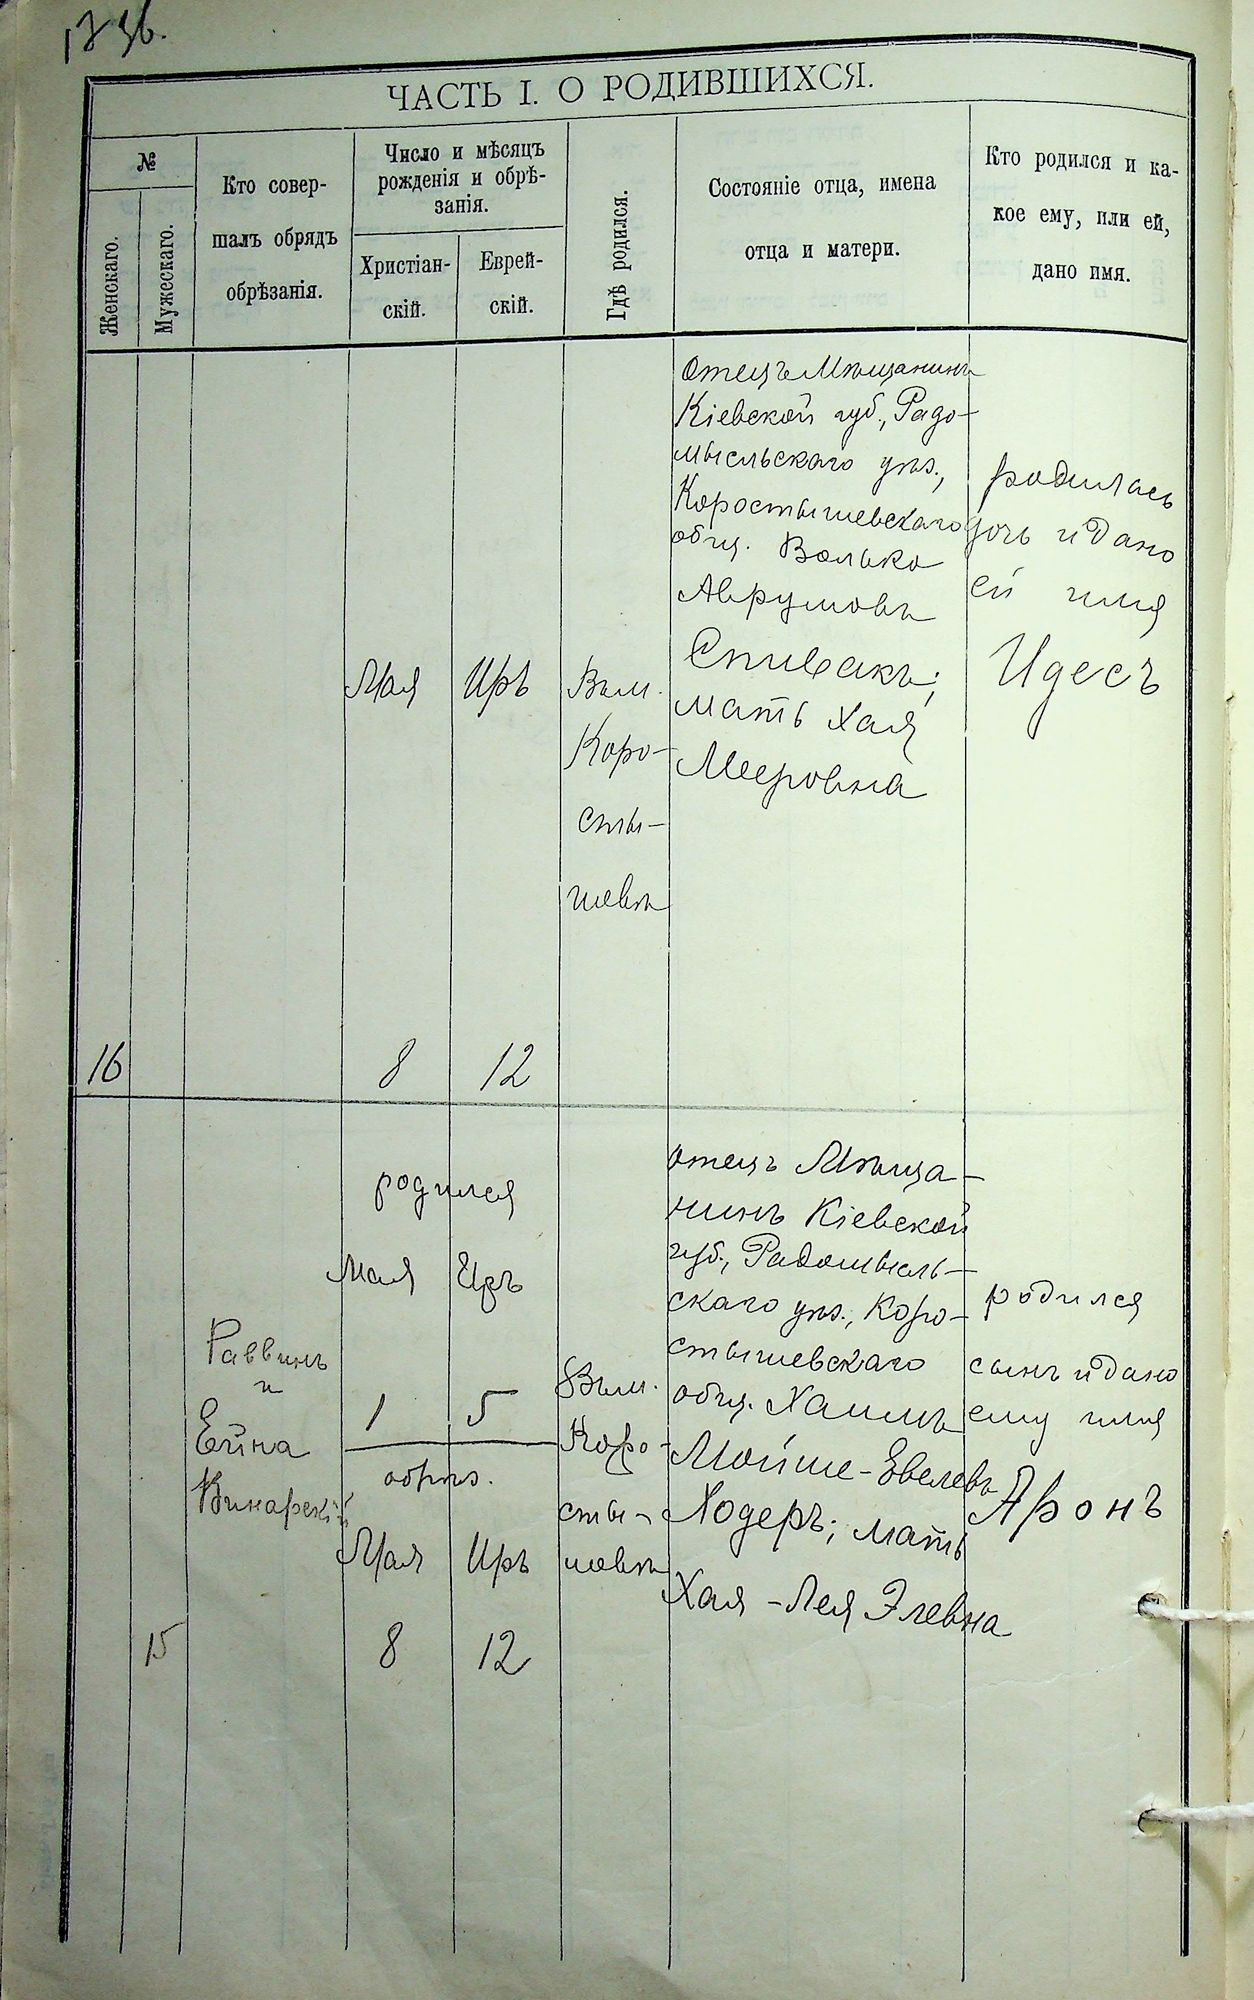 ЧАСТЬ I. О РОДИВШИХСЯ.
№
Женскаго.
Мужескаго.
Кто совер-
шалъ обрядъ
обрѣзанія.
Число и мѣсяцъ
рожденія и обрѣ-
занія.
Христіан-
скій.
Еврей-
скій.
Гдѣ родился.
Состояніе отца, имена
отца и матери.
Кто родился и ка-
кое ему, или ей,
дано имя.
16
Мая
8
Иръ
12
Въ м.
Коро-
сты-
шевѣ
отецъ Мѣщанинъ
Кіевской губ., Радо-
мысльскаго уѣз.,
Коростышевскаго
общ. Волько
Аврумовъ
Спивакъ;
мать Хая
Мееровна
родилась
дочь и дано
ей имя
Идесъ
15
Раввинъ
и
Ейна
Винарскій
родился
Мая Иръ
1 5
обрѣз.
Мая Иръ
8 12
Въ м.
Коро-
сты-
шевѣ
отецъ Мѣща-
нинъ Кіевской
губ., Радомысль-
скаго уѣз., Коро-
стышевскаго
общ. Хаимъ
Мойше-Евелевъ
Ходеръ; мать
Хая-Лея Элевна
родился
сынъ и дано
ему имя
Аронъ